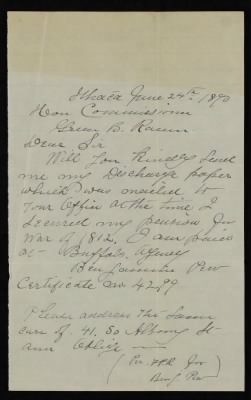 Ithaca June 24th 1890
Hon Commissioner
Green B. Raum
Dear Sir
Will you Kindly send
me my Discharge paper
which was mailed to
your office at the time I
secured my pension for
War of 1812. I am paid
at Buffalo Agency
Benjamin Pew
Certificate no 4299
Please address the same
care of 41. So Albany St
and Oblige
Benj. Pew